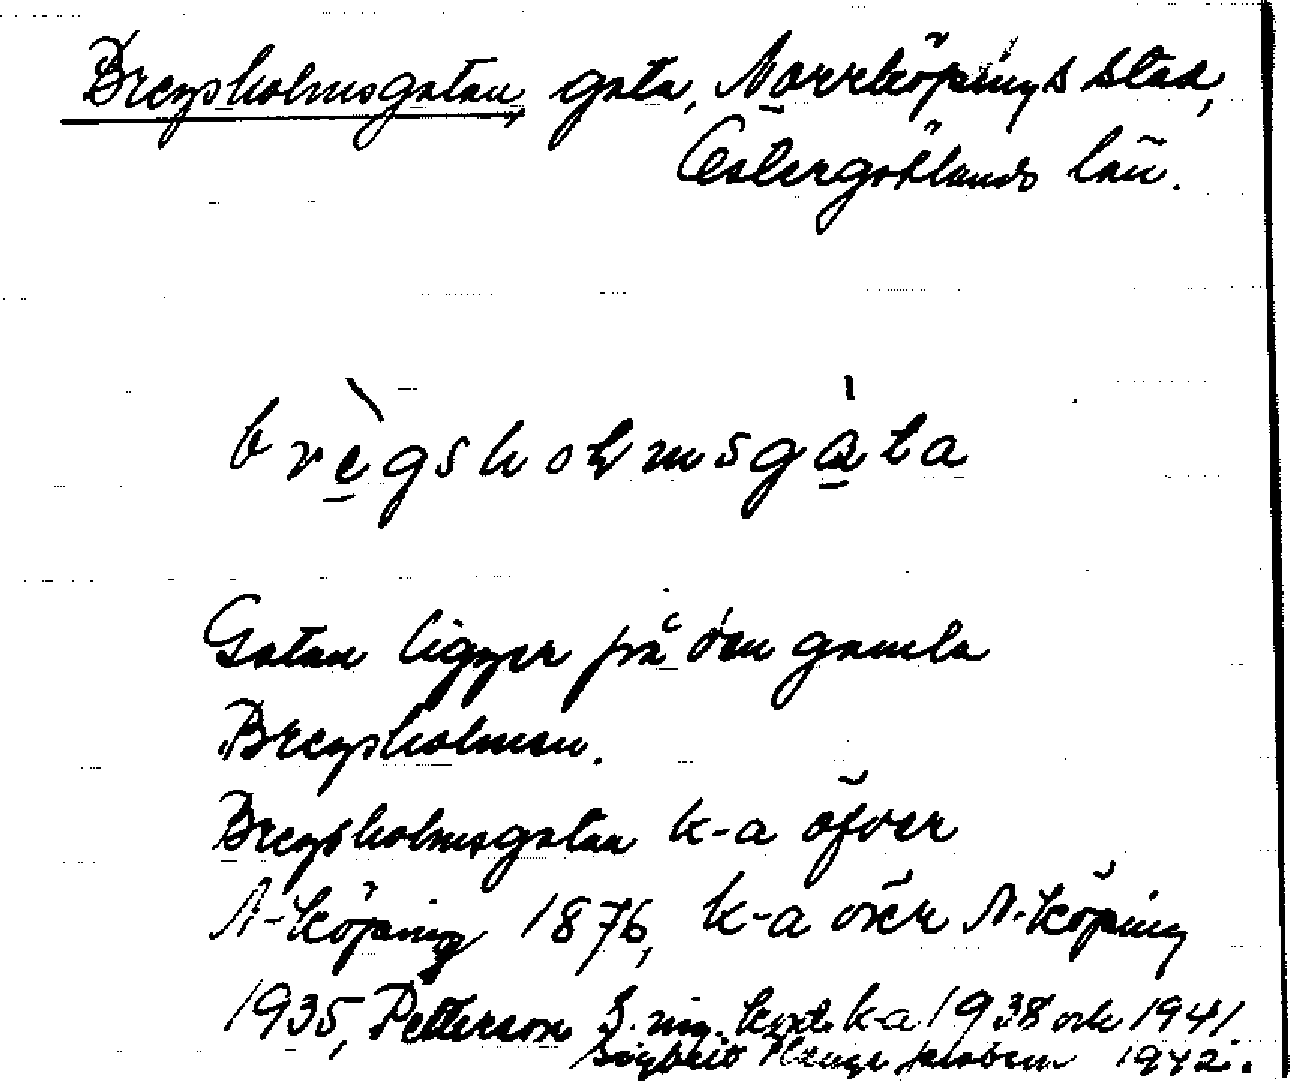 Bregsholmsgatan, gata, Norrköpings stad,
Östergötlands län.
brègsholmsgàta
Gatan ligger på den gamla
Bregsholmen.
Bregsholmsgatan k-a öfver
N-köping 1876, k-a över N-köping
1935, Petterson S. k-a 1938 och 1941
1942.